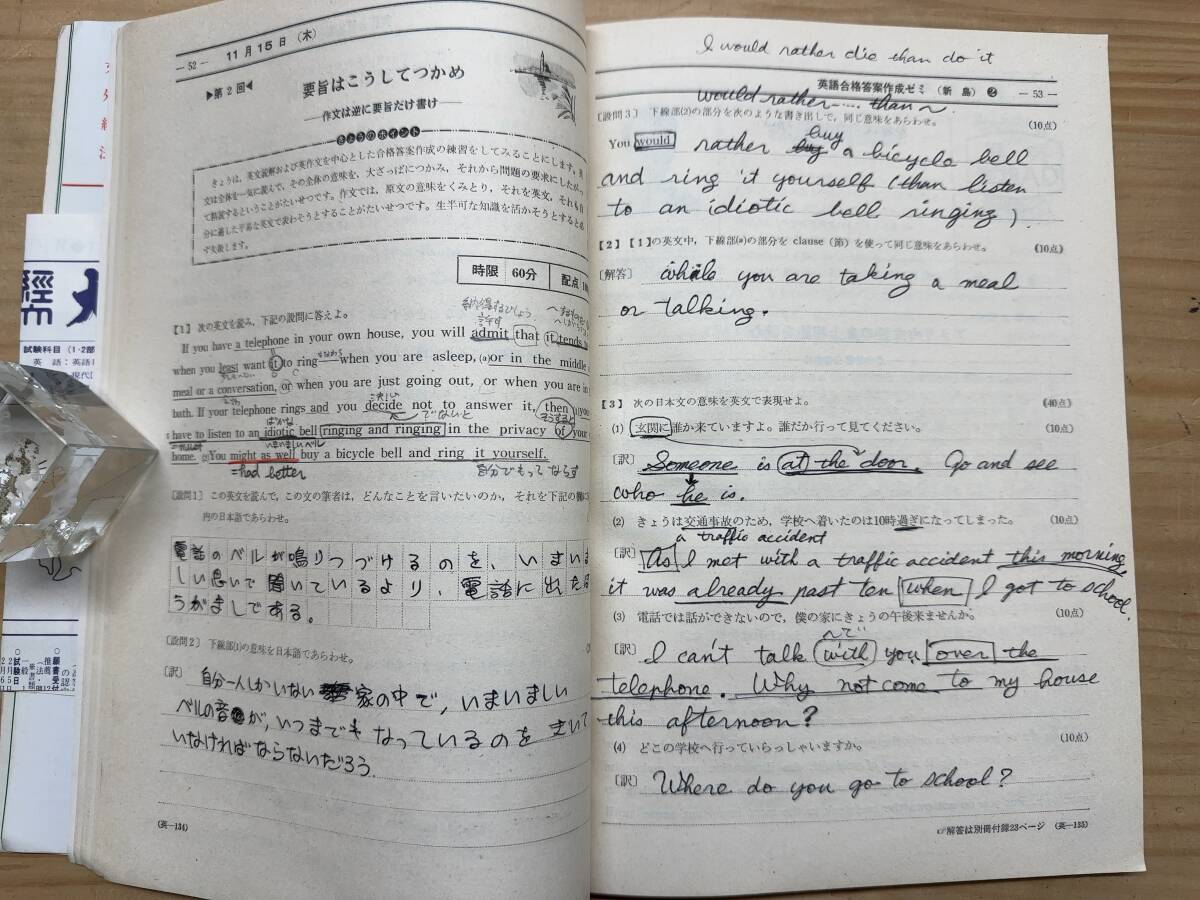 — 52 — 11月15日（木）
▶第2回◀
要旨はこうしてつかめ
——作文は逆に要旨だけ書け——
きょうのポイント
きょうは、英文読解および英作文を中心とした合格答案作成の練習をしてみることにします。英
文は全体を一気に読んで、その全体の意味を、大ざっぱにつかみ、それから問題の要求にしたがっ
て精読するということがたいせつです。作文では、原文の意味をくみとり、それを英文、それも自
分に適した平易な英文で表わそうとすることがたいせつです。生半可な知識を活かそうとするとめ
ず失敗します。
時限 60分 配点
【1】 次の英文を読み、下記の設問に答えよ。
If you have a telephone in your own house, you will admit that it tends
when you least want it to ring—when you are asleep, (a)or in the middle
meal or a conversation, or when you are just going out, or when you are in
bath. If your telephone rings and you decide not to answer it, then (1)you
have to listen to an idiotic bell ringing and ringing in the privacy of your
home. (2)You might as well buy a bicycle bell and ring it yourself.
=had better
〔設問1〕 この英文を読んで、この文の筆者は、どんなことを言いたいのか、それを下記の欄に
内の日本語であらわせ。
電話のベルが鳴りつづけるのを、いまいま
しい思いで聞いているより、電話に出た
うがましである。
〔設問2〕 下線部(1)の意味を日本語であらわせ。
〔訳〕 自分一人しかいない家の中で、いまいましい
ベルの音が、いつまでもなっているのをきいて
いなければならないだろう.
(英—134)
I would rather die than do it
英語合格答案作成ゼミ（新島）❷ — 53 —
would rather..... than ~
〔設問3〕 下線部(2)の部分を次のような書き出しで、同じ意味をあらわせ。 (10点)
You would rather buy a bicycle bell
and ring it yourself (than listen
to an idiotic bell ringing).
【2】【1】の英文中、下線部(a)の部分を clause（節）を使って同じ意味をあらわせ。 (10点)
〔解答〕 while you are taking a meal
or talking.
【3】 次の日本文の意味を英文で表現せよ。 (40点)
(1) 玄関に誰か来ていますよ。誰だか行って見てください。 (10点)
〔訳〕 Someone is at the door. Go and see
who he is.
(2) きょうは交通事故のため、学校へ着いたのは10時過ぎになってしまった。 (10点)
a traffic accident
〔訳〕 As I met with a traffic accident this morning,
it was already past ten when I got to school.
(3) 電話では話ができないので、僕の家にきょうの午後来ませんか。 (10点)
〔訳〕 I can't talk with you over the
telephone. Why not come to my house
this afternoon?
(4) どこの学校へ行っていらっしゃいますか。 (10点)
〔訳〕 Where do you go to school?
☞解答は別冊付録23ページ (英—135)